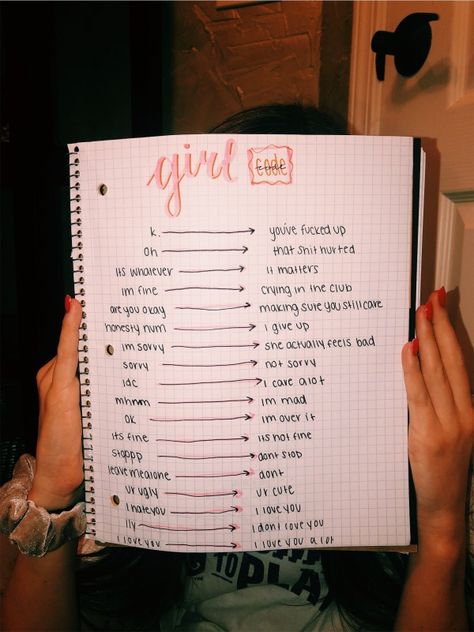 girl code
k. → you've fucked up
oh → that shit hurted
its whatever → it matters
im fine → crying in the club
are you okay → making sure you still care
honesty hum → i give up
im sorry → she actually feels bad
sorry → not sorry
idc → i care alot
mhmm → im mad
ok → im over it
its fine → its not fine
stoppp → dont stop
leave mealone → dont
ur ugly → ur cute
i hate you → i love you
ily → i dont love you
i love you → i love you a lot
TO PLA